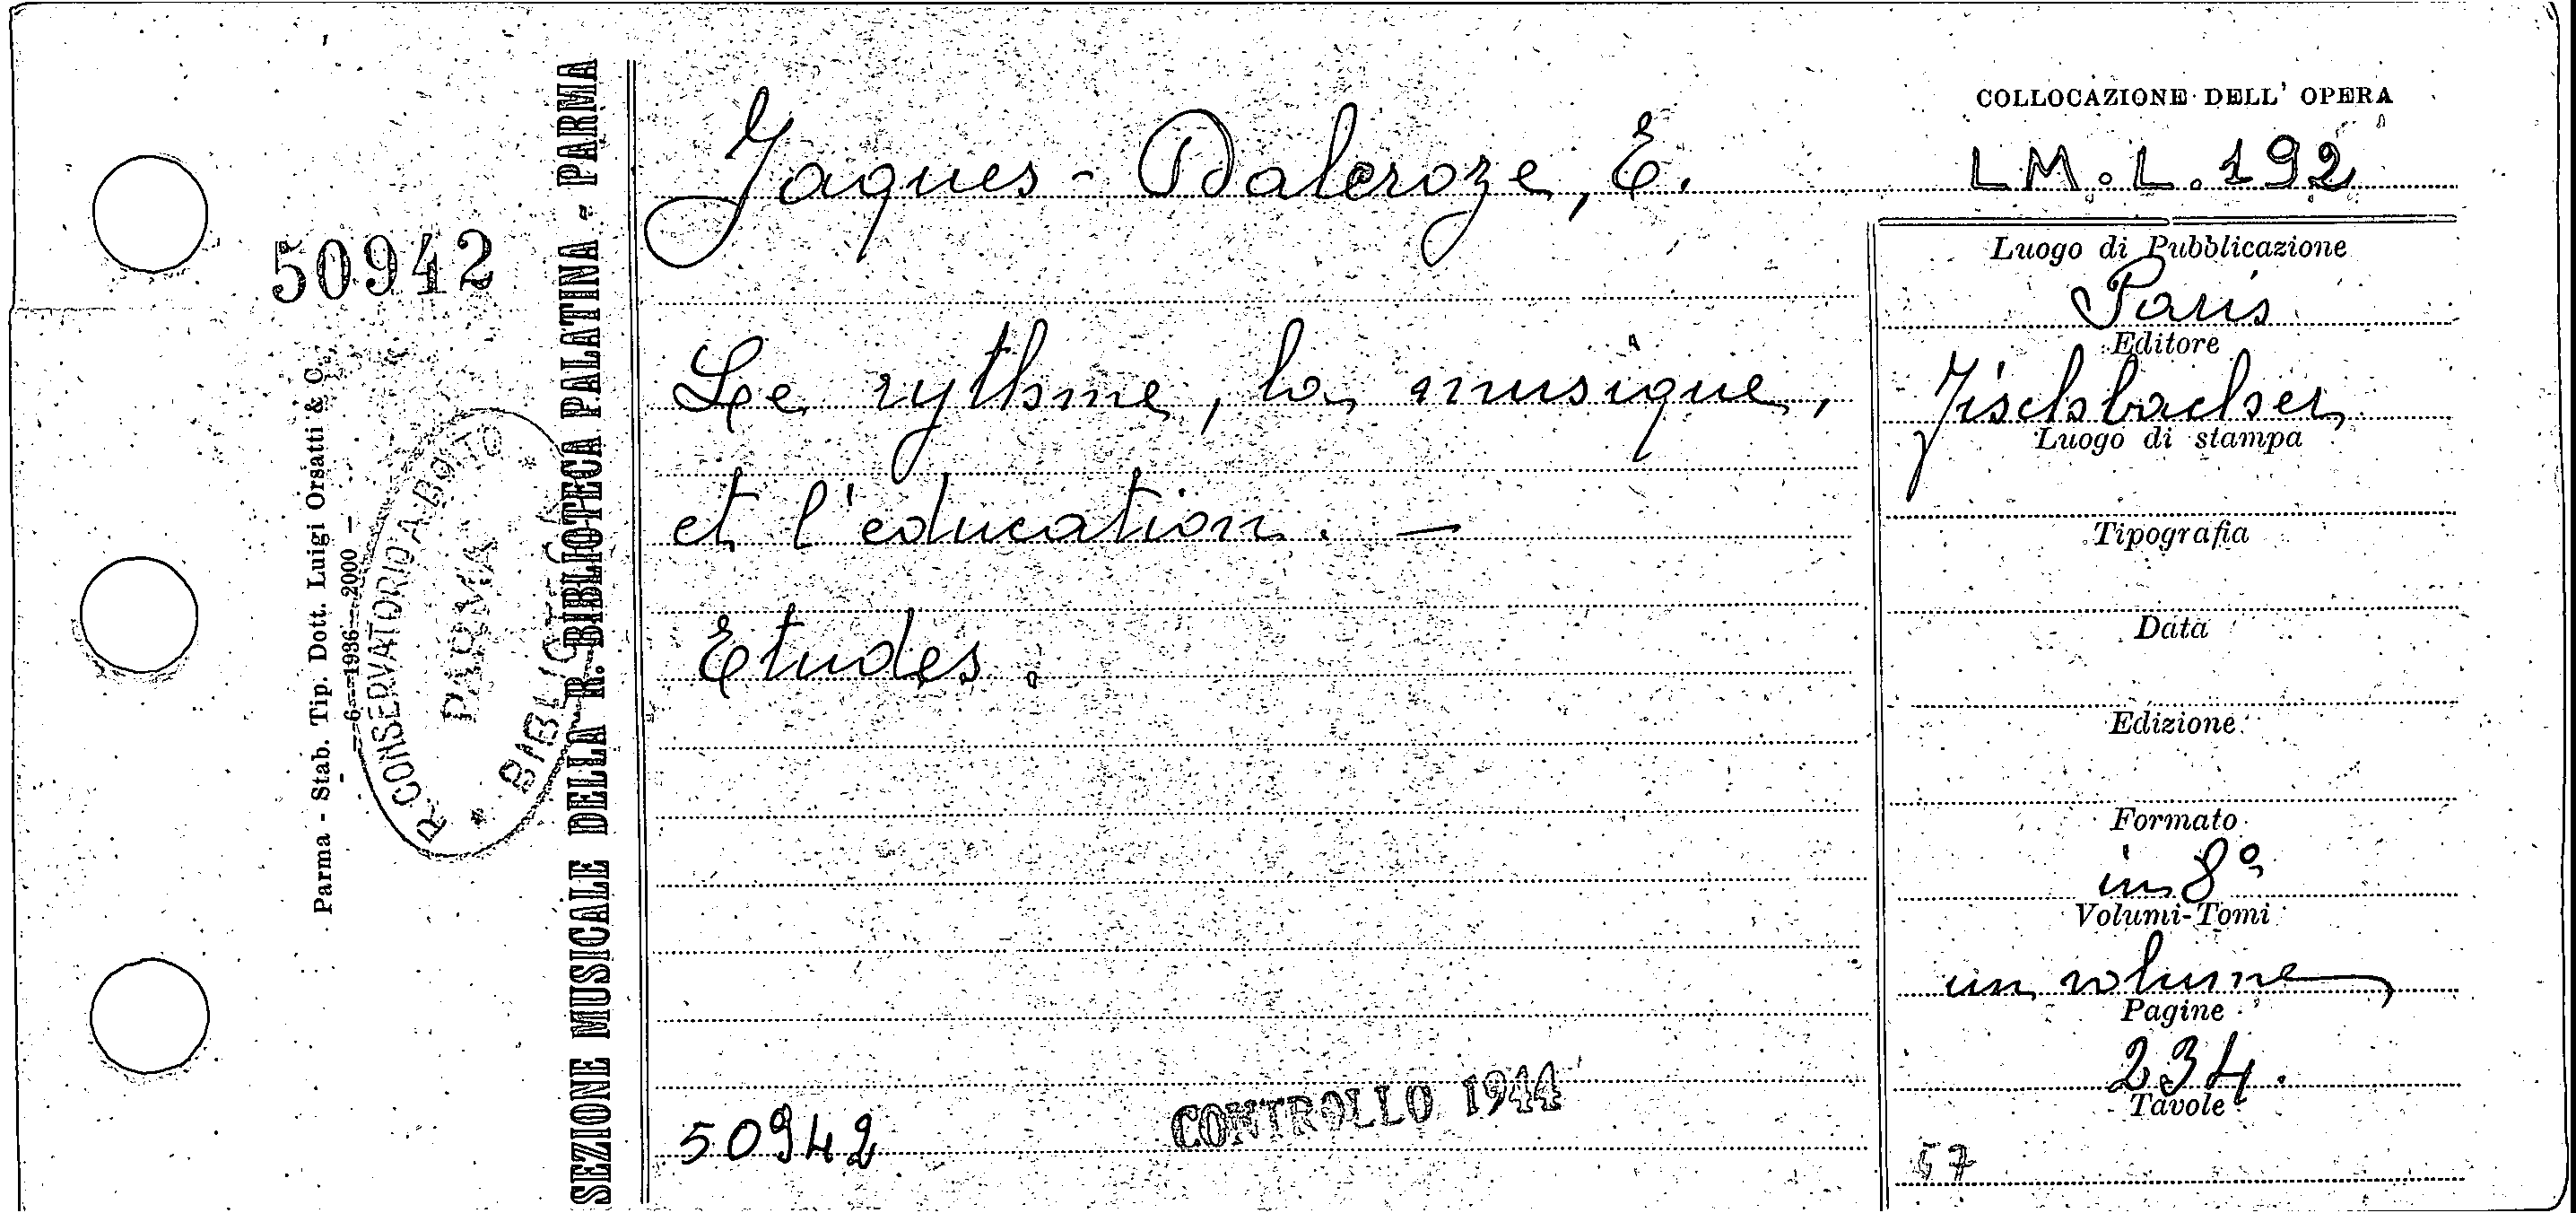 50942
Parma - Stab. Tip. Dott. Luigi Orsatti & C.
— 6 — 1936 — 2000 —
R. CONSERVATORIO A. BOITO
PARMA
* BIBLIOTECA *
SEZIONE MUSICALE DELLA R. BIBLIOTECA PALATINA - PARMA
Jaques-Dalcroze, E.
Le rythme, la musique,
et l'education. —
Etudes.
50942
CONTROLLO 1944
COLLOCAZIONE DELL' OPERA
LM.L.192
Luogo di Pubblicazione
Paris
Editore
Fischbacher
Luogo di stampa
Tipografia
Data
Edizione
Formato
in 8°
Volumi-Tomi
un volume
Pagine
234.
Tavole
57